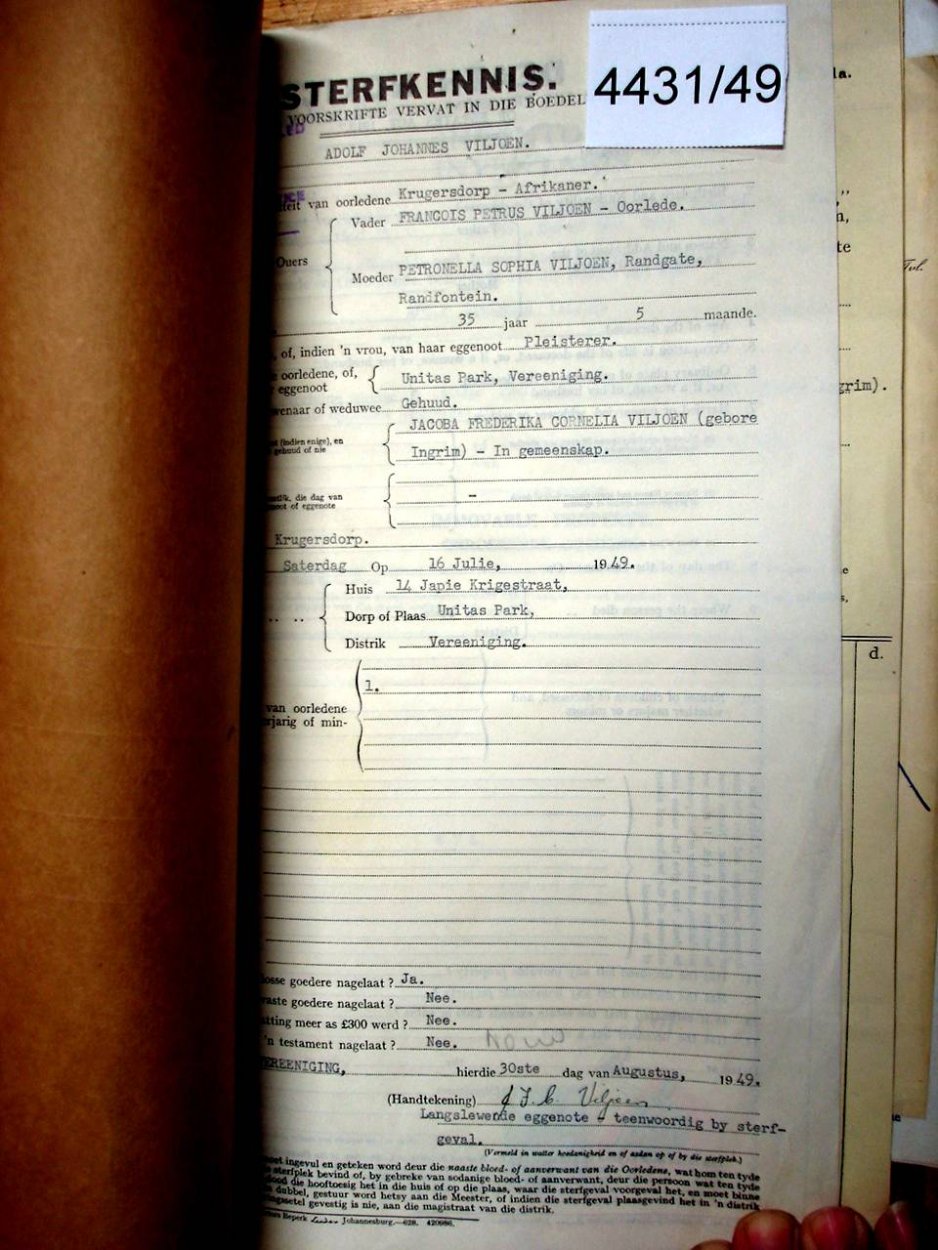 STERFKENNIS.
4431/49
VOORSKRIFTE VERVAT IN DIE BOEDEL
ADOLF JOHANNES VILJOEN.
teit van oorledene Krugersdorp - Afrikaner.
Ouers
Vader FRANCOIS PETRUS VILJOEN - Oorlede.
Moeder PETRONELLA SOPHIA VILJOEN, Randgate,
Randfontein.
35 jaar 5 maande.
, of, indien 'n vrou, van haar eggenoot Pleisterer.
oorledene, of,
eggenoot
Unitas Park, Vereeniging.
wenaar of weduwee Gehuud.
(indien enige), en
gehuud of nie
JACOBA FREDERIKA CORNELIA VILJOEN (gebore
Ingrim) - In gemeenskap.
die dag van
noot of eggenote
-
Krugersdorp.
Saterdag Op 16 Julie, 1949.
Huis 14 Japie Krigestraat,
Dorp of Plaas Unitas Park,
Distrik Vereeniging.
1.
van oorledene
rjarig of min-
losse goedere nagelaat ? Ja.
vaste goedere nagelaat ? Nee.
tting meer as £300 werd ? Nee.
'n testament nagelaat ? Nee.
VEREENIGING, hierdie 30ste dag van Augustus, 1949.
(Handtekening) J F C Viljoen
Langslewende eggenote - teenwoordig by sterf-
geval.
(Vermeld in watter hoedanigheid en of aldan op of by die sterfplek.)
moet ingevul en geteken word deur die naaste bloed- of aanverwant van die Oorledene, wat hom ten tyde
sterfplek bevind of, by gebreke van sodanige bloed- of aanverwant, deur die persoon wat ten tyde
dood die hooftoesig het in die huis of op die plaas, waar die sterfgeval voorgeval het, en moet binne
dubbel, gestuur word hetsy aan die Meester, of indien die sterfgeval plaasgevind het in 'n distrik
gevestig is nie, aan die magistraat van die distrik.
Beperk Johannesburg.—628. 420986.
la.
te
grim).
d.